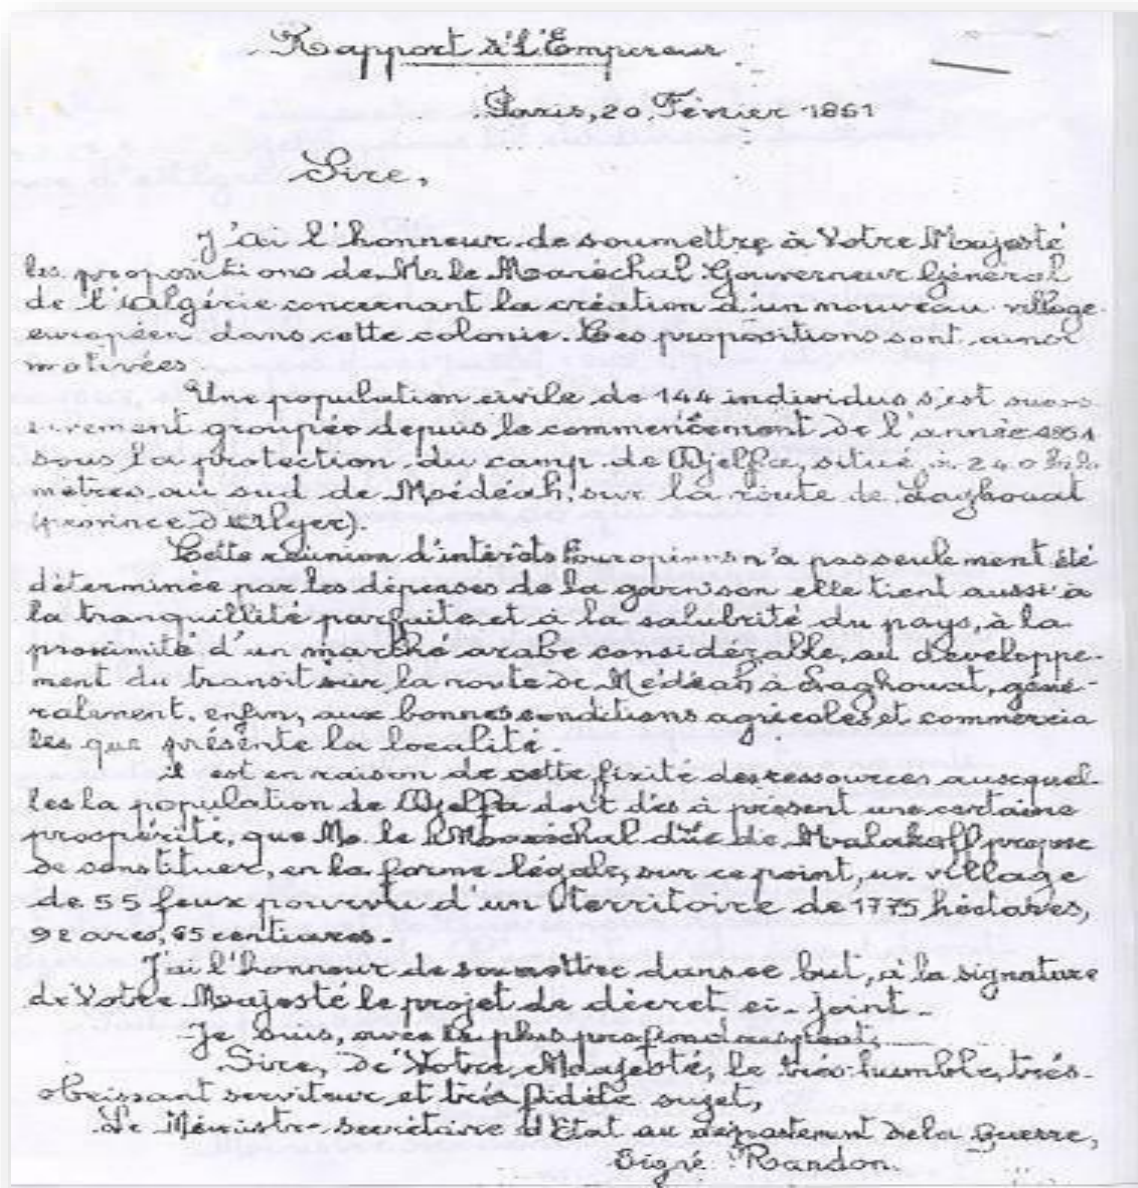 Rapport à l'Empereur
Paris, 20 Février 1861
Sire,
J'ai l'honneur de soumettre à Votre Majesté
les propositions de M. le Maréchal Gouverneur Général
de l'Algérie concernant la création d'un nouveau village
européen dans cette colonie. Ces propositions sont ainsi
motivées
Une population civile de 144 individus s'est succes
sivement groupée depuis le commencement de l'année
sous la protection du camp de Djelfa, situé à 240 kilo
mètres au sud de Médéah, sur la route de Laghouat
(province d'Alger).
Cette réunion d'intérêts Européens n'a pas seulement été
déterminée par les dépenses de la garnison elle tient aussi à
la tranquillité parfaite et à la salubrité du pays, à la
proximité d'un marché arabe considérable, au développe-
ment du transit sur la route de Médéah à Laghouat, géné-
ralement, enfin, aux bonnes conditions agricoles et commercia
les que présente la localité.
il est en raison de cette fixité des ressources auxquel-
les la population de Djelfa doit dès à présent une certaine
prospérité, que M. le Maréchal duc de Malakoff propose
de constituer, en la forme légale, sur ce point, un village
de 55 feux pourvu d'un territoire de 1775 hectares,
92 ares, centiares.
J'ai l'honneur de soumettre dans ce but, à la signature
de Votre Majesté le projet de décret ci-joint.
Je suis, avec le plus profond respect,
Sire, de Votre Majesté, le très-humble, très-
obéissant serviteur et très fidèle sujet,
Le Ministre-secrétaire d'Etat au département de la Guerre,
Signé : Randon.